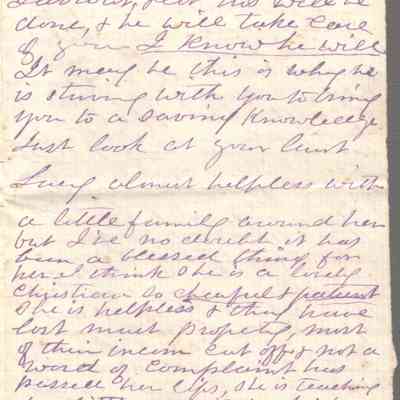 will be
done, & he will take care
of you I know he will
It may be this is why he
is striving with you to bring
you to a saving knowledge
Just look at your Aunt
Lucy almost helpless with
a little family around her
but I've no doubt it has
been a blessed thing for
her. I think she is a lovely
Christian so cheerful & patient
she is helpless & they have
lost much property, most
of their incom cut off & not a
word of complaint has
passed her lips, she is teaching